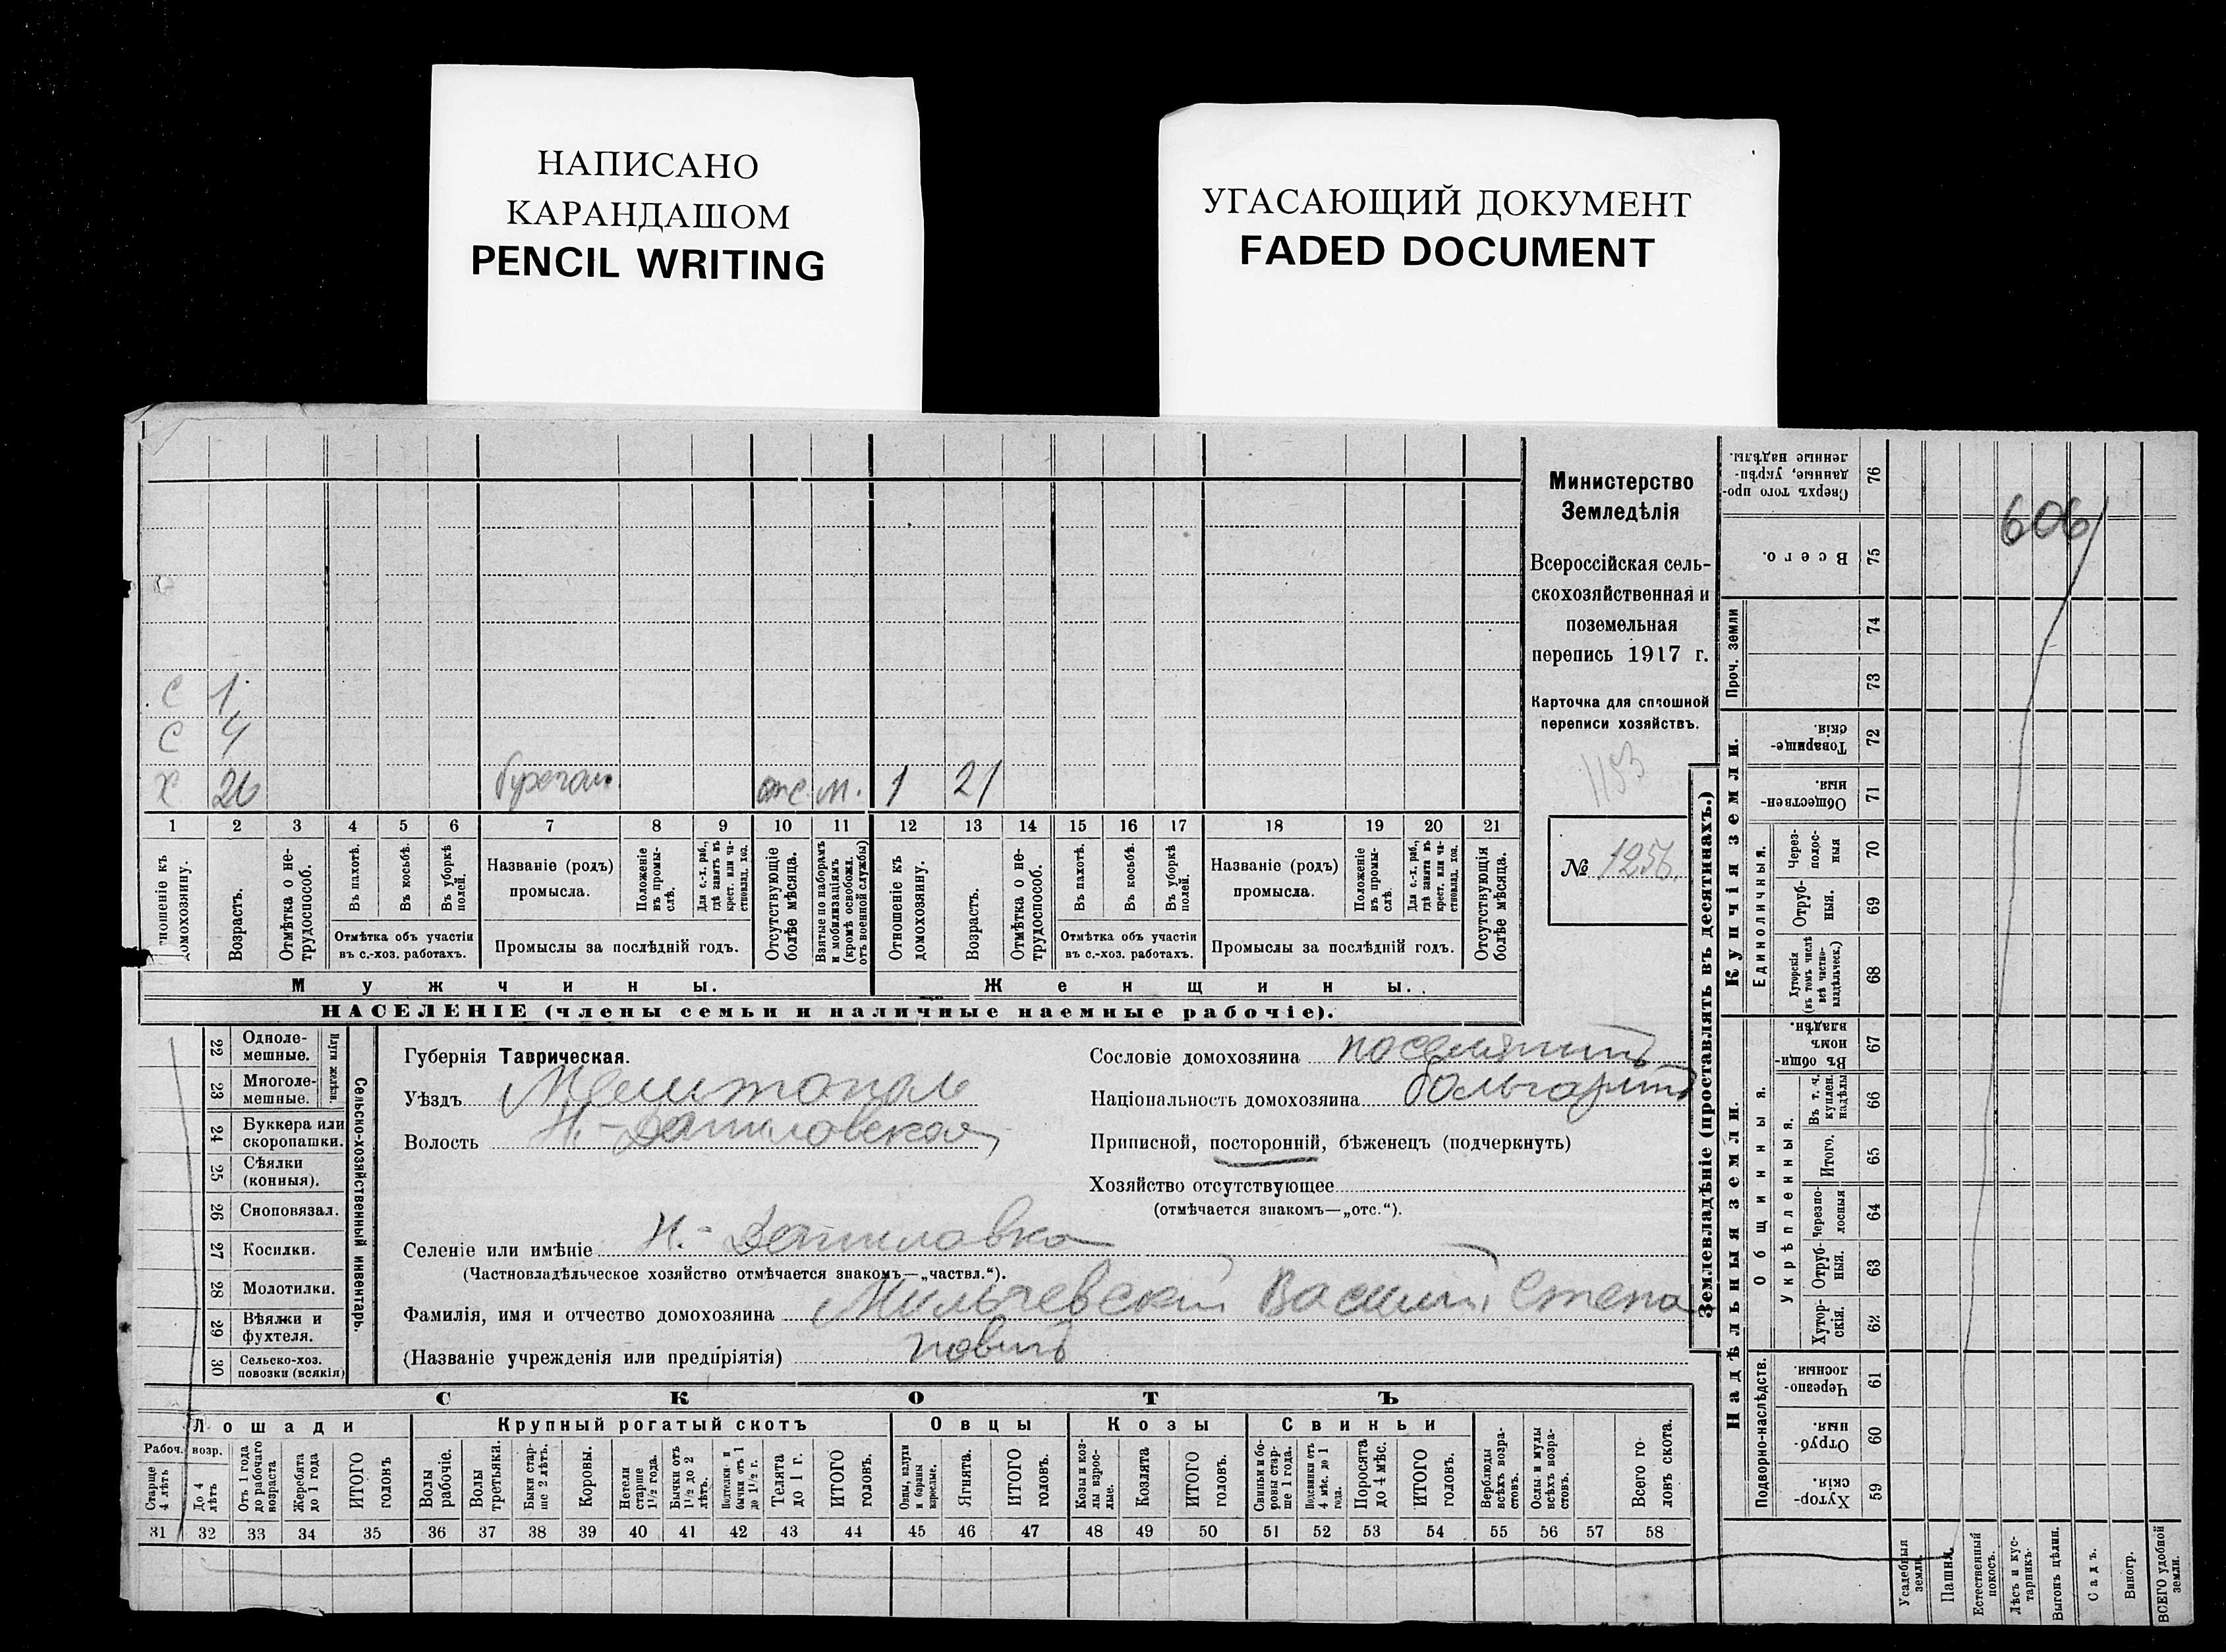 НАПИСАНО
КАРАНДАШОМ
PENCIL WRITING
УГАСАЮЩИЙ ДОКУМЕНТ
FADED DOCUMENT
606
Министерство
Земледѣлія
Всероссійская сель-
скохозяйственная и
поземельная
перепись 1917 г.
Карточка для сплошной
переписи хозяйствъ.
1153
№ 1256.
С 1
С 4
Х 26 отс. м. 1 21
1 2 3 4 5 6 7 8 9 10 11 12 13 14 15 16 17 18 19 20 21
домохозяину.
Возрастъ.
Отмѣтка о не-
трудоспособ.
Въ пахотѣ.
Въ косьбѣ.
Въ уборкѣ
полей.
Отмѣтка объ участіи
въ с.-хоз. работахъ.
Названіе (родъ)
промысла.
Положеніе
въ промы-
слѣ.
Для с.-х. раб.,
гдѣ занятъ въ
крест. или ча-
стновлад. хоз.
Промыслы за послѣдній годъ.
Отсутствующіе
болѣе мѣсяца.
Взятые по наборамъ
и мобилизаціямъ
(кромѣ освобожд.
отъ военной службы)
Отношеніе къ
домохозяину.
Возрастъ.
Отмѣтка о не-
трудоспособ.
Въ пахотѣ.
Въ косьбѣ.
Въ уборкѣ
полей.
Отмѣтка объ участіи
въ с.-хоз. работахъ.
Названіе (родъ)
промысла.
Положеніе
въ промы-
слѣ.
Для с.-х. раб.,
гдѣ занята въ
крест. или ча-
стновлад. хоз.
Промыслы за послѣдній годъ.
Отсутствующія
болѣе мѣсяца.
Мужчины.
Женщины.
НАСЕЛЕНІЕ (члены семьи и наличные наемные рабочіе).
22 Одноле-
мешные.
23 Многоле-
мешные.
Плуги желѣзн.
24 Буккера или
скоропашки.
25 Сѣялки
(конныя).
26 Сноповязал.
27 Косилки.
28 Молотилки.
29 Вѣялки и
фухтеля.
30 Сельско-хоз.
повозки (всякія)
Сельско-хозяйственный инвентарь.
Губернія Таврическая.
Уѣздъ Мелитополь
Волость Н.-Даниловская
Селеніе или имѣніе Н.-Даниловка
(Частновладѣльческое хозяйство отмѣчается знакомъ—„частвл.“).
Фамилія, имя и отчество домохозяина Мильчевский Василий Степа
новичъ
(Названіе учрежденія или предпріятія)
Сословіе домохозяина поселянинъ
Національность домохозяина болгаринъ
Приписной, посторонній, бѣженецъ (подчеркнуть)
Хозяйство отсутствующее
(отмѣчается знакомъ—„отс.“).
СКОТЪ
Лошади
Рабоч. возр.
Старше
4 лѣтъ
До 4
лѣтъ
Отъ 1 года
до рабочаго
возраста
Жеребята
до 1 года
ИТОГО
головъ
Крупный рогатый скотъ
Волы
рабочіе.
Волы
третьяки.
Быки стар-
ше 2 лѣтъ.
Коровы.
Нетели
старше
1½ года.
Бычки отъ
1½ до 2
лѣтъ.
Подтелки и
бычки отъ 1
до 1½ г.
Телята
до 1 г.
ИТОГО
головъ.
Овцы
Овцы, валухи
и бараны
взрослые.
Ягнята.
ИТОГО
головъ.
Козы
Козы и коз-
лы взрос-
лые.
Козлята
ИТОГО
головъ.
Свиньи
Свиньи и бо-
ровы стар-
ше 1 года.
Подсвинки отъ
4 мѣс. до 1
года.
Поросята
до 4 мѣс.
ИТОГО
головъ.
Верблюды
всѣхъ возра-
стовъ.
Ослы и мулы
всѣхъ возра-
стовъ.
Всего го-
ловъ скота.
31 32 33 34 35 36 37 38 39 40 41 42 43 44 45 46 47 48 49 50 51 52 53 54 55 56 57 58
Землевладѣніе (проставлять въ десятинахъ.)
Сверхъ того про-
данные, укрѣп-
ленные надѣлы. 76
Всего. 75
Проч. земли
74
73
Купчія земли.
Товарище-
скія. 72
Обществен-
ныя. 71
Единоличныя.
Через-
полос-
ныя 70
Отруб-
ныя. 69
Хуторскія
(въ томъ числѣ
всѣ частно-
владѣльческ.) 68
Надѣльныя земли.
Общинныя.
Въ общин-
номъ
владѣн. 67
Укрѣпленныя.
Въ т. ч.
куплен.
надѣлы 66
Итого. 65
Черезпо-
лосныя 64
Отруб-
ныя. 63
Хутор-
скія. 62
Подворно-наслѣдств.
Черезпо-
лосныя. 61
Отруб-
ныя. 60
Хутор-
скія. 59
Усадебныя
земли.
Пашня.
Естественный
покосъ.
Лѣсъ и кус-
тарникъ.
Выгонъ цѣлин.
Садъ.
Виногр.
ВСЕГО удобной
земли.